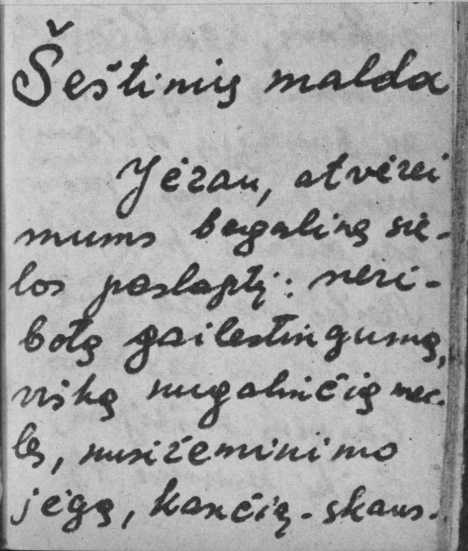 Šeštinių malda
Jėzau, atvėrei
mums begalinę sie-
los paslaptį: neri-
botą gailestingumą,
viską nugalinčią mei-
lę, nusižeminimo
jėgą, kančią - skaus-